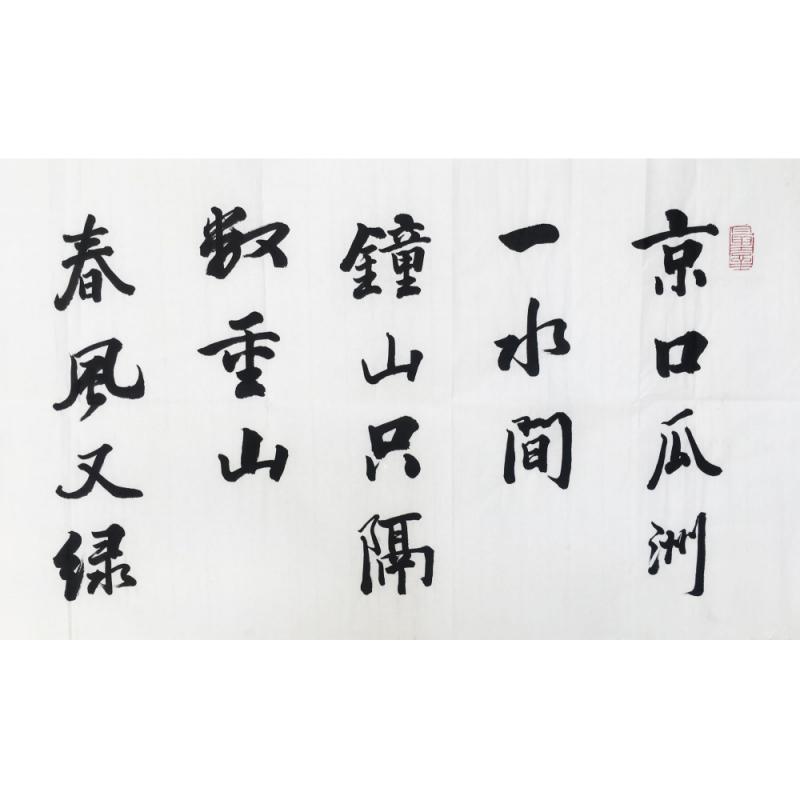 京口瓜洲
一水間
鐘山只隔
数重山
春風又绿